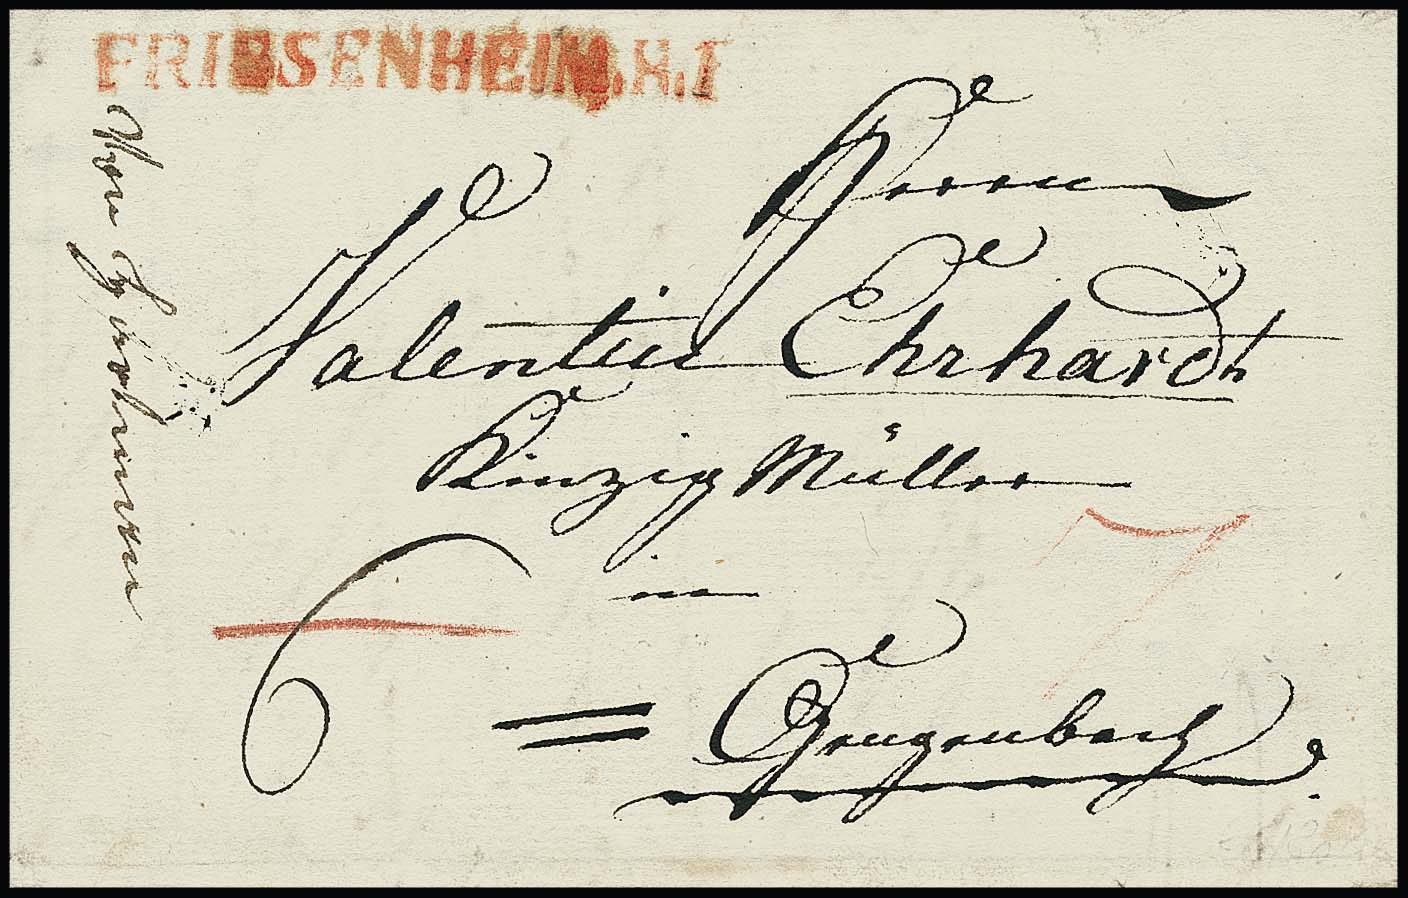 FRIESENHEIM.H.F
Herrn
Valentin Ehrhardt
Kinzig Müller
in
= Gengenbach
6
7
Von